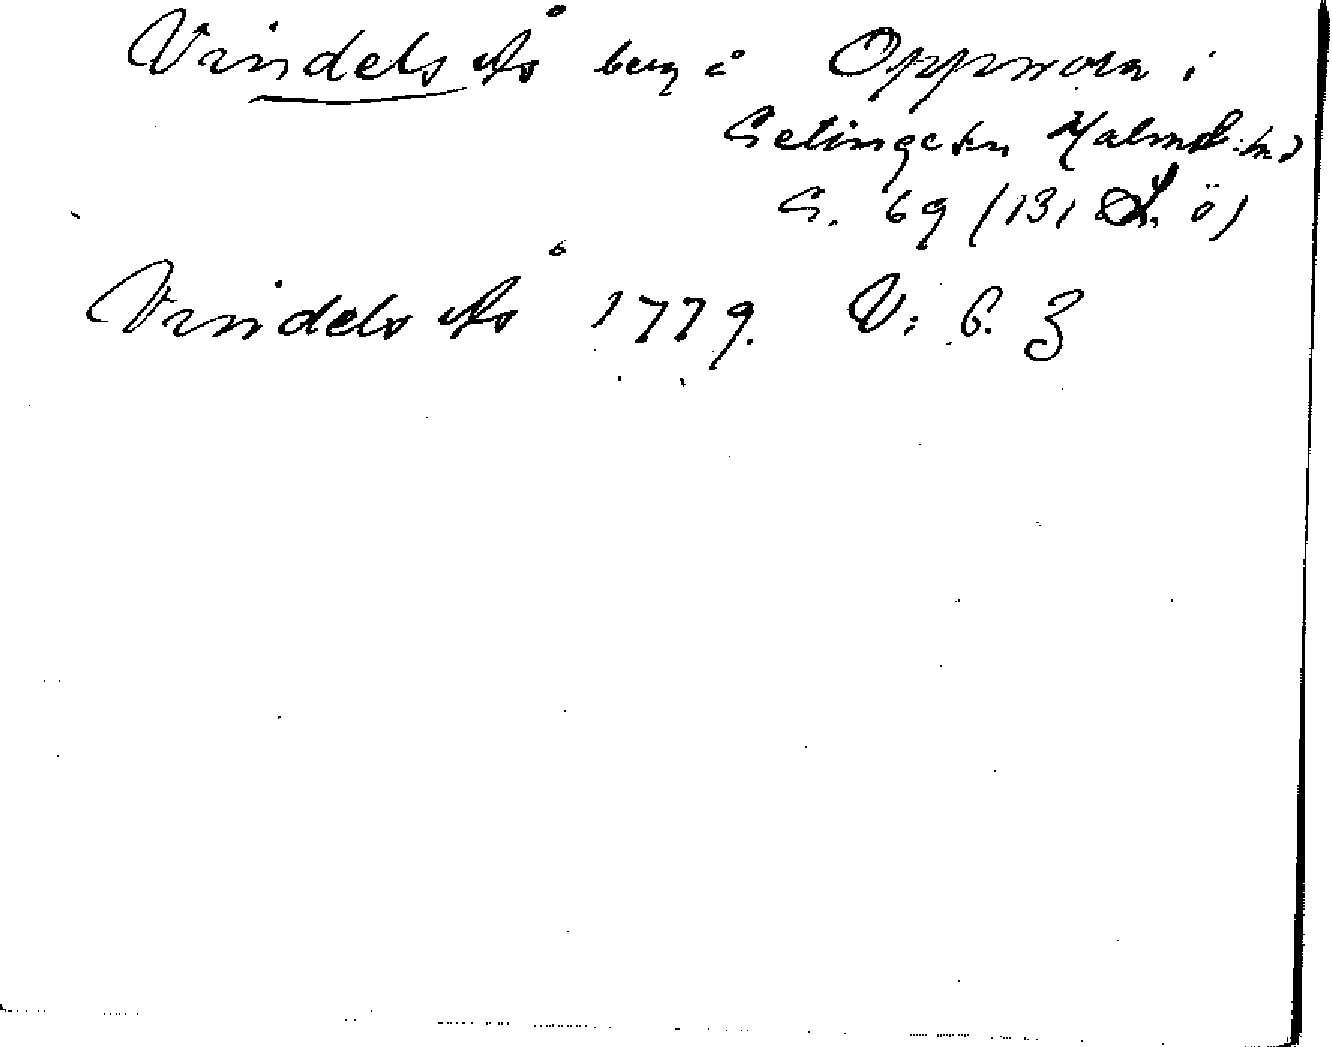 Vrindels Ås berg å Oppmora i
Selinge sn, Malmö hd
S. 69 (131 L. ö)
Vrindels Ås 1779. V: 6. 3